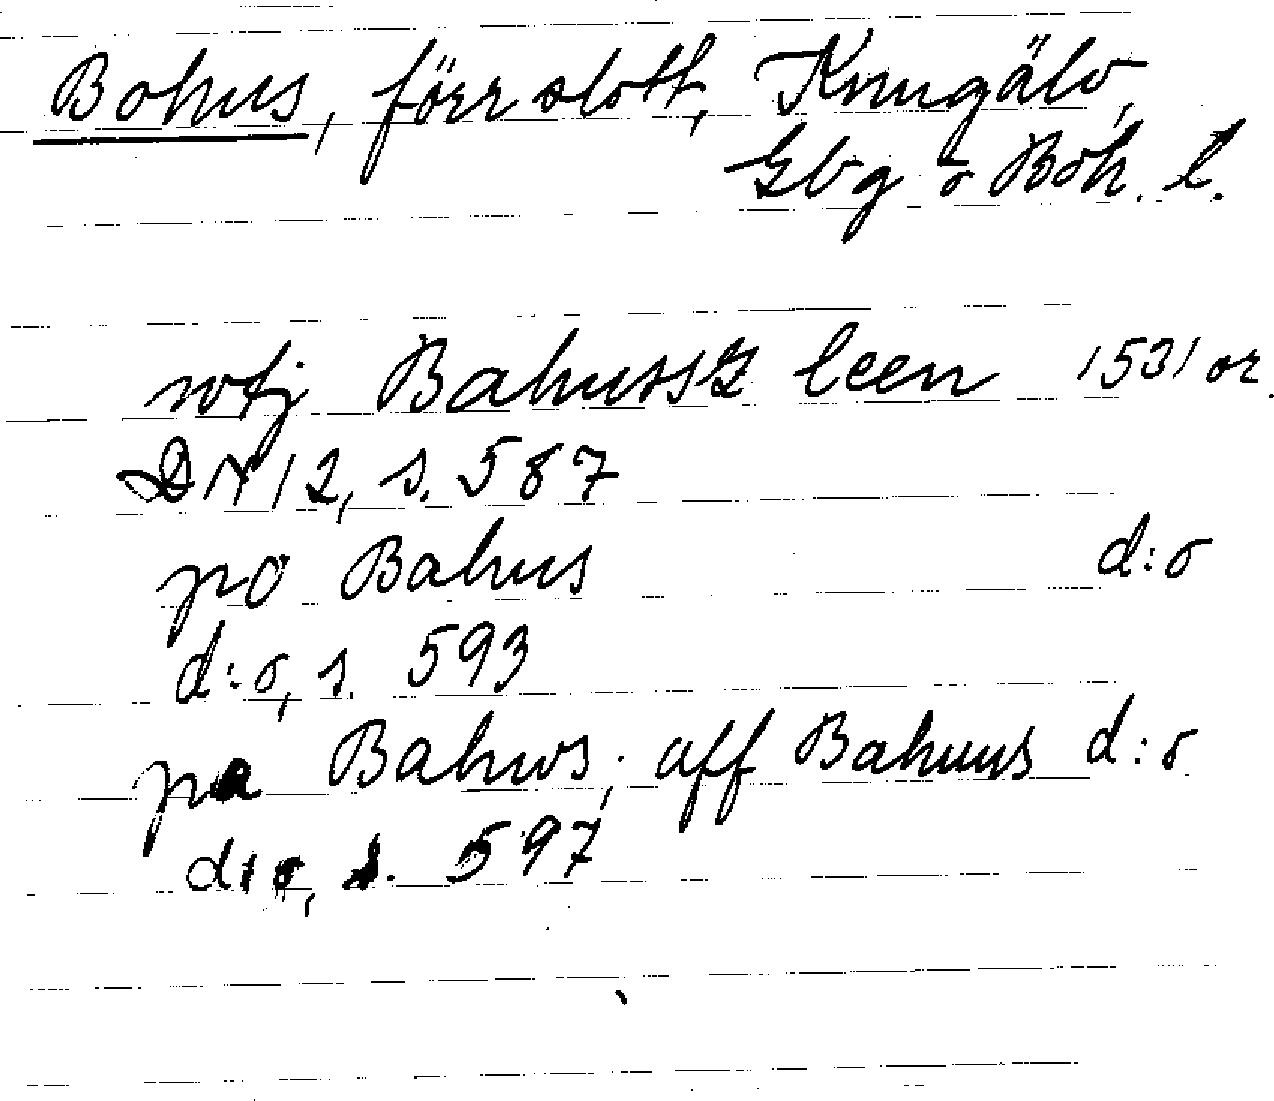 Bohus, förr slott, Kungälv,
Gbg o Boh. l.
wtj Bahussz leen 1531 or.
DN 12, s. 587
po Bahus d:o
d:o, s. 593
pa Bahws, aff Bahuus d:o
d:o, s. 597